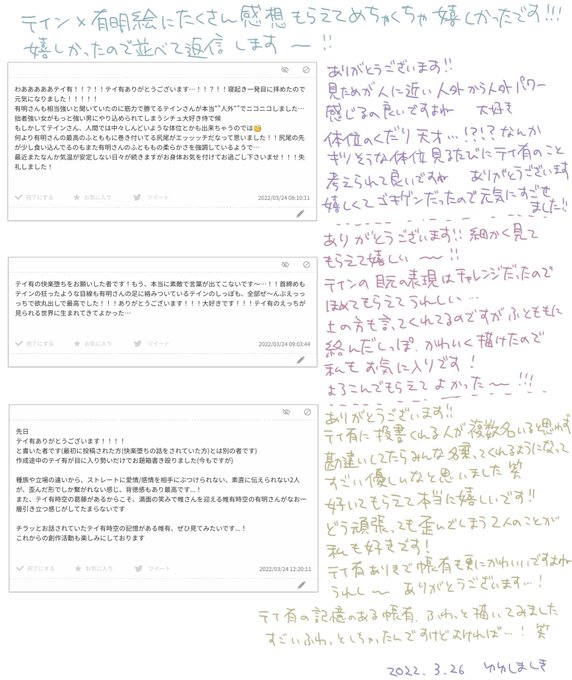 テイン×有明絵にたくさん感想もらえてめちゃくちゃ嬉しかったです!!!
嬉しかったので並べて返信します〜!!
わあああああテイ有!!!?!!テイ有ありがとうございます…!!?!!寝起き一発目に拝めたので
元気になりました!!!!!
有明さんも相当強いと聞いていたのに筋力で勝てるテインさんが本当""人外""でニコニコしました…
拙者強い女がもっと強い男にやり込められてしまうシチュ大好き侍で候
もしかしてテインさん、人間では中々しんどいような体位とかも出来ちゃうのでは🤔
何より有明さんの最高のふとももに巻き付いてる尻尾がエッッッチだなって思いました!!尻尾の先
が少し食い込んでるのもまた有明さんのふともものの柔らかさを強調しているようで…
最近またなんか気温が安定しない日々が続きますがお身体お気を付けてお過ごし下さいませ!!!失
礼しました!
完了にする
お気に入り
ツイート
2022/03/24 08:10:11
ありがとうございます!!
見ためが人に近い人外から人外パワー
感じるの良いですよね 大好き
体位のくだり天才…!?!?なんか
ギリそうな体位見るたびにテイ有のこと
考えられて良いですね ありがとうございます
嬉しくてゴキゲンだったので元気にすごせ
ました!!
テイ有の快楽堕ちをお願いした者です!もう、本当に素敵で言葉が出てこないです〜…!!首締めも
テインの狂ったような目線も有明さんの足に絡みついているテインのしっぽも、全部ぜ〜んぶえっっ
っちで欲丸出しで最高でした!!!ありがとうございます!!!大好きです!!!テイ有のえっちが
見られる世界に生まれてきてよかった…
完了にする
お気に入り
ツイート
2022/03/24 09:03:44
ありがとうございます!!細かく見て
もらえて嬉しい〜〜!!
テインの目元の表現はチャレンジだったので
ほめてもらえてうれしい…
上の方も言ってくれてるのですがふとももに
絡んだしっぽ、かわいく描けたので
私もお気に入りです!
よろこんでもらえてよかった〜!!!
先日
テイ有ありがとうございます!!!!
と書いた者です(最初に投稿された方(快楽堕ちの話をされていた方)とは別の者です)
作成途中のテイ有が目に入り勢いだけでお題箱書き殴りました(今もですが)
種族や立場の違いから、ストレートに愛情/感情を相手にぶつけられない、素直に伝えられない2人
が、歪んだ形でしか繋がれない感じ、背徳感もあり最高です...!
また、テイ有時空の葛藤があるからこそ、満面の笑みで帷さんを迎える帷有時空の有明さんがなお一
層引き立つ感じがしてたまらないです
チラッとお話されていたテイ有時空の記憶がある帷有、ぜひ見てみたいです...!
これからの創作活動も楽しみにしております
完了にする
お気に入り
ツイート
2022/03/24 12:20:11
ありがとうございます!!
テイ有に投書くれる人が複数名いると思わず
勘違いしてたらみんな名乗ってくれるようになって
すごい優しいなと思いました 笑
好いてもらえて本当に嬉しいです!!
どう頑張っても歪んでしまう2人のことが
私も好きです!
テイ有ありきで帳有も更にかわいいですよね
うれし〜 ありがとうございます…!
テイ有の記憶のある帳有、ふわっと描いてみました
すごいふわっとしちゃったんですけどよければ…! 笑
2022.3.26